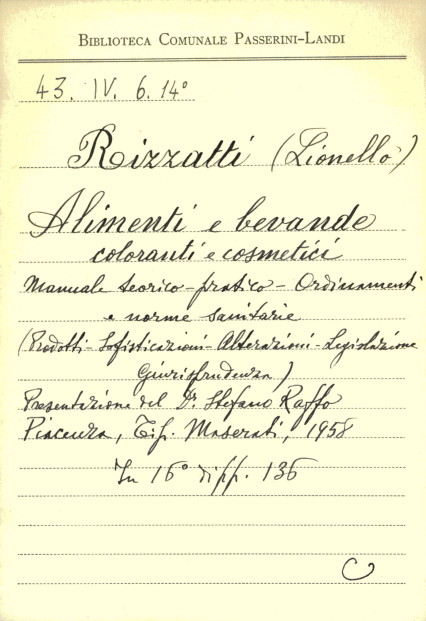 BIBLIOTECA COMUNALE PASSERINI-LANDI
43. IV. 6. 14°
Rizzatti (Lionello)
Alimenti e bevande
coloranti e cosmetici
Manuale teorico-pratico - Ordinamenti
e norme sanitarie
(Prodotti - Sofisticazioni - Alterazioni - Legislazione
Giurisprudenza)
Presentazione del Dr. Stefano Raffo
Piacenza, Tip. Maserati, 1958
In 16° di pp. 136
C